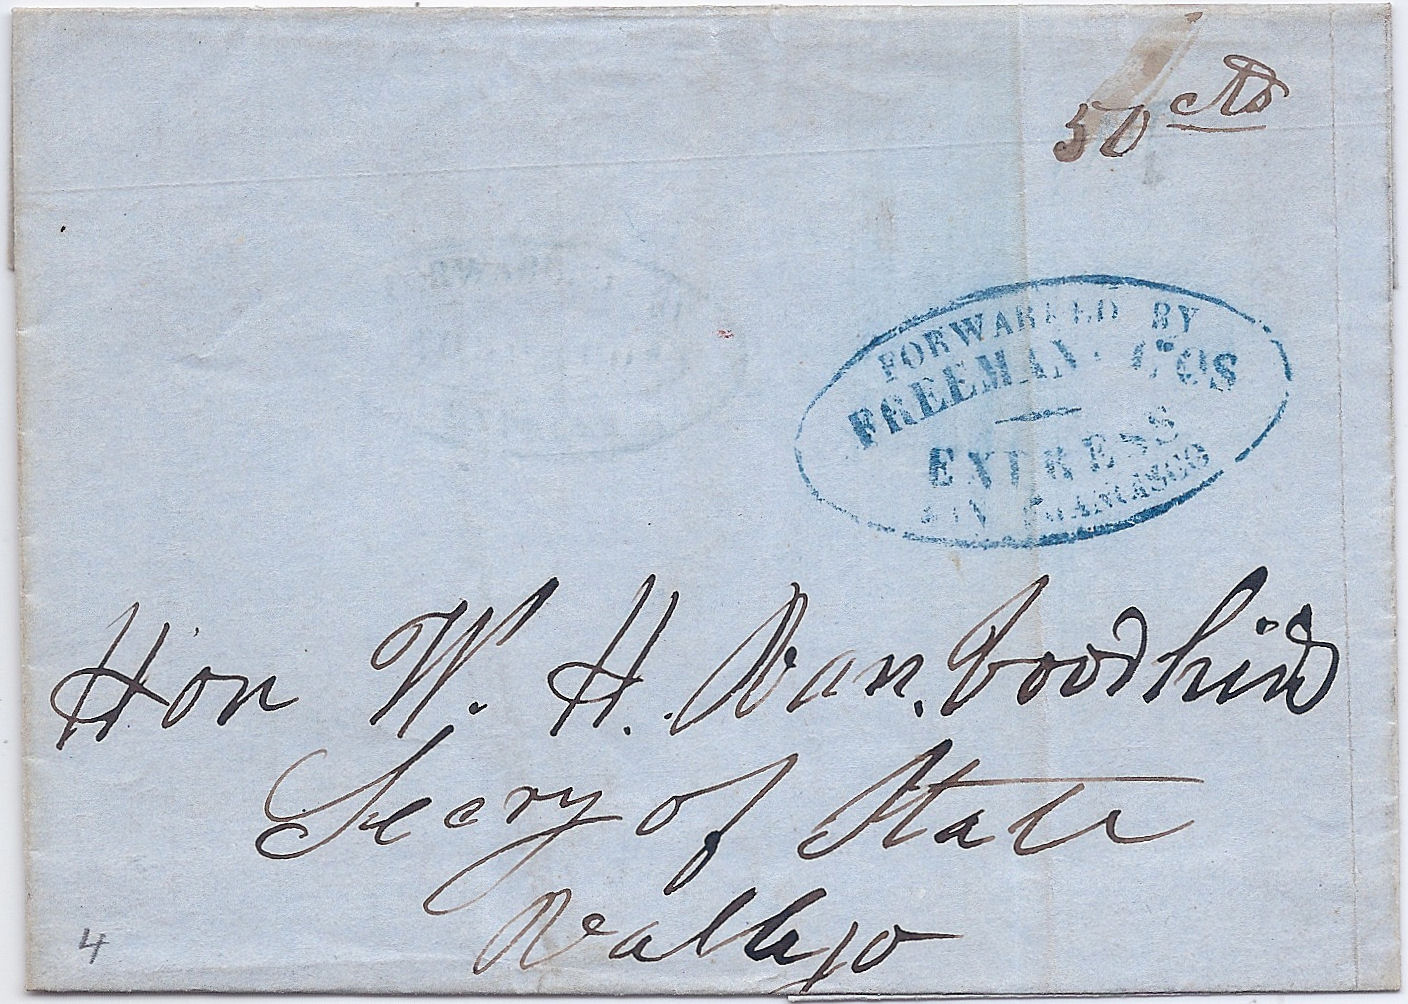 50 cts
FORWARDED BY
FREEMAN & COS
EXPRESS
SAN FRANCISCO
Hon W. H. Van. Boodhies
Secry of State
Vallejo
4